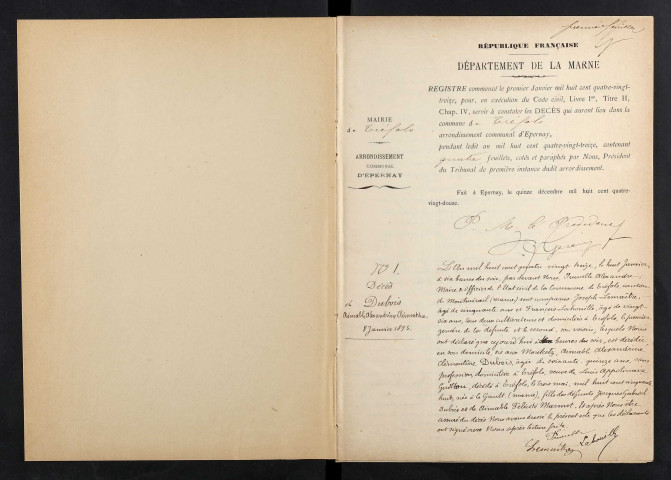 premier feuillet
RÉPUBLIQUE FRANÇAISE
DÉPARTEMENT DE LA MARNE
REGISTRE commencé le premier Janvier mil huit cent quatre-vingt-
treize, pour, en exécution du Code civil, Livre Ier, Titre II,
Chap. IV, servir à constater les DÉCÈS qui auront lieu dans la
commune de Tréfols
arrondissement communal d'Epernay,
pendant ledit an mil huit cent quatre-vingt-treize, contenant
feuillets, cotés et paraphés par Nous, Président
du Tribunal de première instance dudit arrondissement.
Fait à Epernay, le quinze décembre mil huit cent quatre-
vingt-douze.
P. M. le Président
MAIRIE
de Tréfols
ARRONDISSEMENT
COMMUNAL
D'EPERNAY
No 1.
Décès
de Dubois
Aimable Alexandrine Clémentine
8 Janvier 1893.
L'An mil huit cent quatre vingt treize, le huit Janvier
à six heures du soir, par devant Nous, Alexandre
Maire & officier de l'Etat civil de la Commune de Tréfols, canton
de Montmirail (Marne) sont comparus Joseph Lemaitre,
âgé de cinquante ans et François Lahouille, âgé de vingt
six ans, tous deux cultivateurs et domiciliés à Tréfols, le premier
gendre de la défunte et le second, un voisin, lesquels Nous
ont déclaré que cejourd'hui à heures du soir, est décédée
en son domicile, Aimable Alexandrine
Clémentine Dubois, âgée de soixante quinze ans, sans
profession, domiciliée à Tréfols, veuve de Louis Appolinaire
décédé à Tréfols, le trois mai, mil huit cent cinquante
huit, née à le Gault (Marne), fille des défunts Jacques Gabriel
Dubois et de Aimable Félicité Marmot. Et après Nous être
assuré du décès Nous avons dressé le présent acte que les déclarants
ont signé avec Nous après lecture faite.
Lemaitre Lahouille